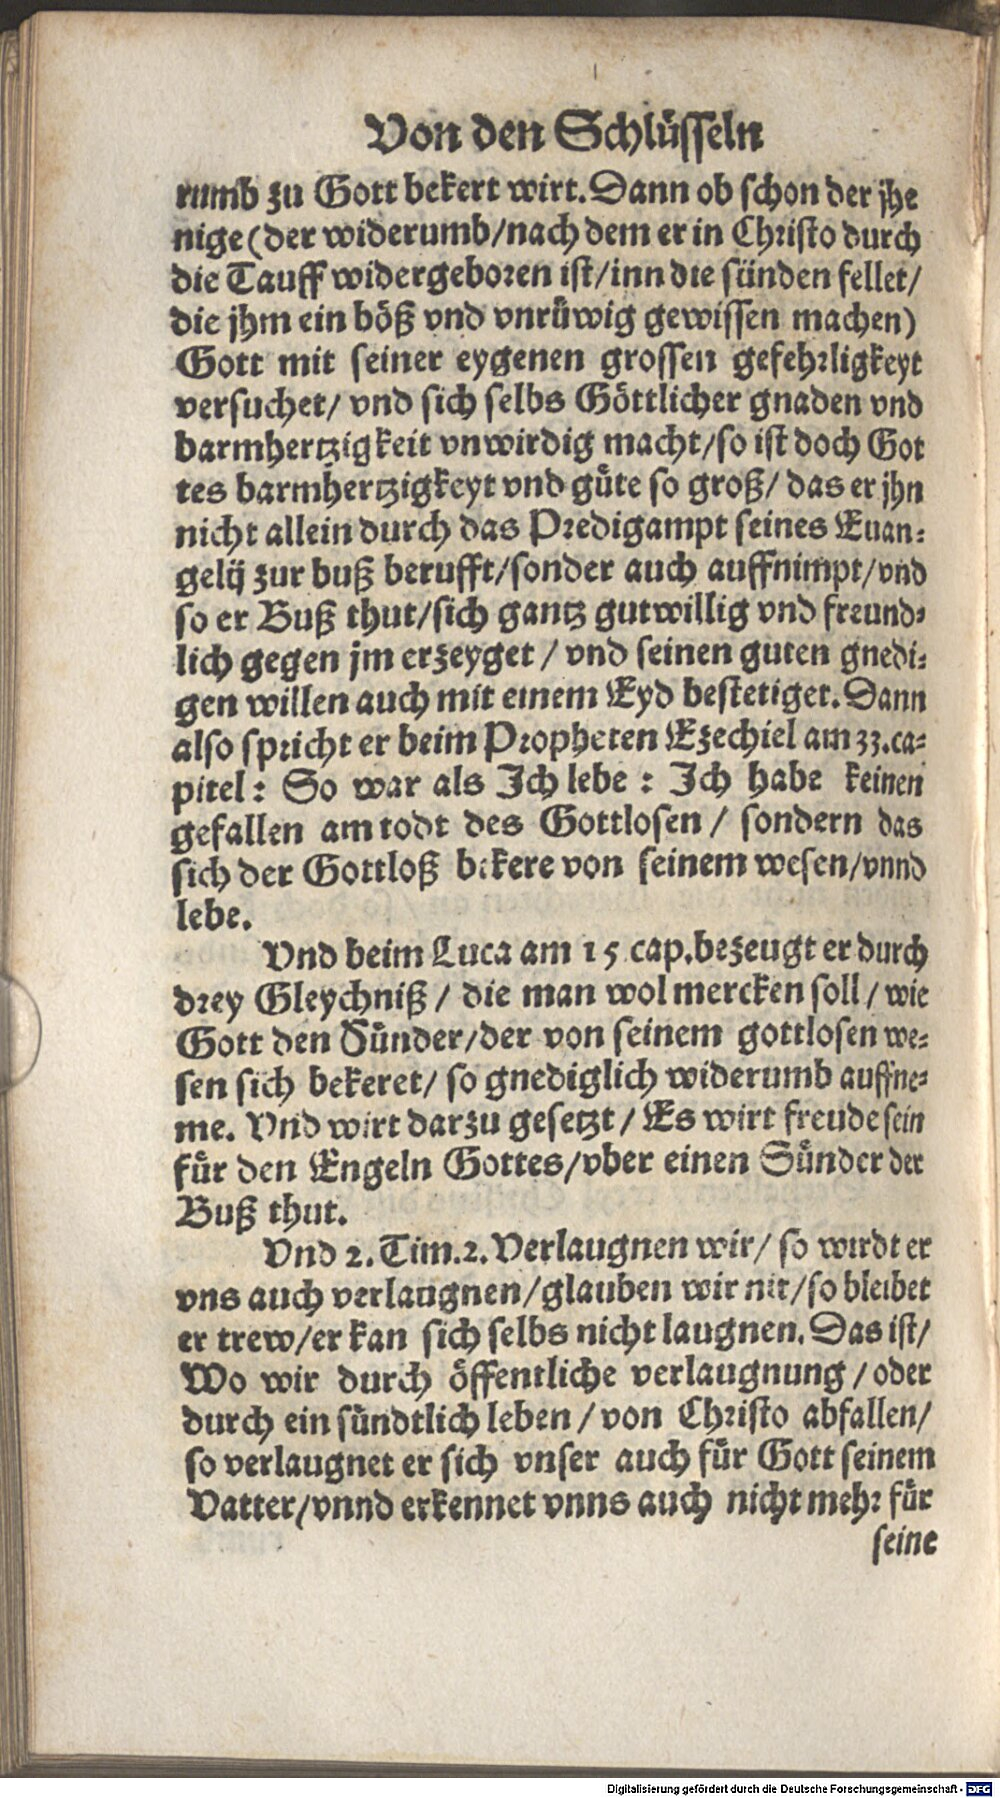 Von den Schlüsseln
rumb zu Gott bekert wirt. Dann ob schon der jhe
nige (der widerumb/ nach dem er in Christo durch
die Tauff widergeboren ist/ inn die sünden fellet/
die jhm ein böß vnd vnrüwig gewissen machen)
Gott mit seiner eygenen grossen gefehrligkeyt
versuchet/ vnd sich selbs Göttlicher gnaden vnd
barmhertzigkeit vnwirdig macht/ so ist doch Got
tes barmhertzigkeyt vnd güte so groß/ das er jhn
nicht allein durch das Predigampt seines Euan-
gelij zur buß berufft/ sonder auch auffnimpt/ vnd
so er Buß thut/ sich gantz gutwillig vnd freund-
lich gegen jm erzeyget / vnd seinen guten gnedi-
gen willen auch mit einem Eyd bestetiget. Dann
also spricht er beim Propheten Ezechiel am 33. ca-
pitel: So war als Ich lebe: Ich habe keinen
gefallen am todt des Gottlosen / sondern das
sich der Gottloß bekere von seinem wesen/ vnnd
lebe.
Vnd beim Luca am 15 cap. bezeugt er durch
drey Gleychniß / die man wol mercken soll / wie
Gott den Sünder/ der von seinem gottlosen we-
sen sich bekeret/ so gnediglich widerumb auffne-
me. Vnd wirt darzu gesetzt / Es wirt freude sein
für den Engeln Gottes/ vber einen Sünder der
Buß thut.
Vnd 2. Tim. 2. Verlaugnen wir/ so wirdt er
vns auch verlaugnen/ glauben wir nit/ so bleibet
er trew/ er kan sich selbs nicht laugnen. Das ist/
Wo wir durch öffentliche verlaugnung / oder
durch ein sündtlich leben / von Christo abfallen/
so verlaugnet er sich vnser auch für Gott seinem
Vatter/ vnnd erkennet vnns auch nicht mehr für
seine
Digitalisierung gefördert durch die Deutsche Forschungsgemeinschaft - DFG